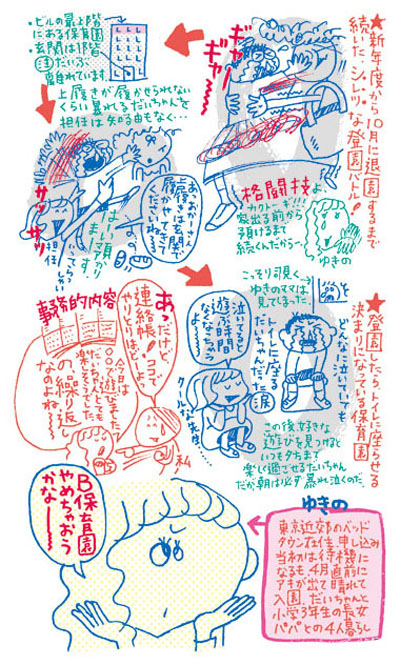 ★新年度から10月に退園するまで
続いた、シレツな登園バトル!
ギャー
ギャー
格闘技よ
カクトーギ!!!
家出る前から
預けるまで
続くんだから〜
ゆきの
・ビルの最上階
にある保育園
・玄関は1階
注だいぶ
離れています
上履きが履かせられない
くらい暴れるだいちゃんを
担任は知る由もなく…
あ、おかあさん
上履きは玄関で
履かせてきて
くださいね
はーい預かり
まーす
サッサッ
担任
★登園したらトイレに座らせる
決まりになっている保育園
どんなに泣いていても
トイレに座る
だいちゃんだった
涙
こっそり覗く
ゆきのママは
見てしまった
泣いてると
遊ぶ時間
なくなっちゃう
よー
クールな先生
この後好きな
遊びを見つけると
いつも夕方まで
楽し過ごせるだいちゃん
だが、朝は必ず暴れ泣くのだ
あっだけど
連絡帳!ココで
やりとりはどーよ。
私
事務的内容
今日は
〇〇で遊びました
だいちゃんとても
楽しそうでした
の繰り返し
なのよね〜
B保育園
やめちゃおう
かな〜
ゆきの
東京近郊のベッド
タウン在住。申し込み
当初は待機に
なるも、4月直前に
アキが出て晴れて
入園。だいちゃんと
小学3年生の長女
パパとの4人暮らし